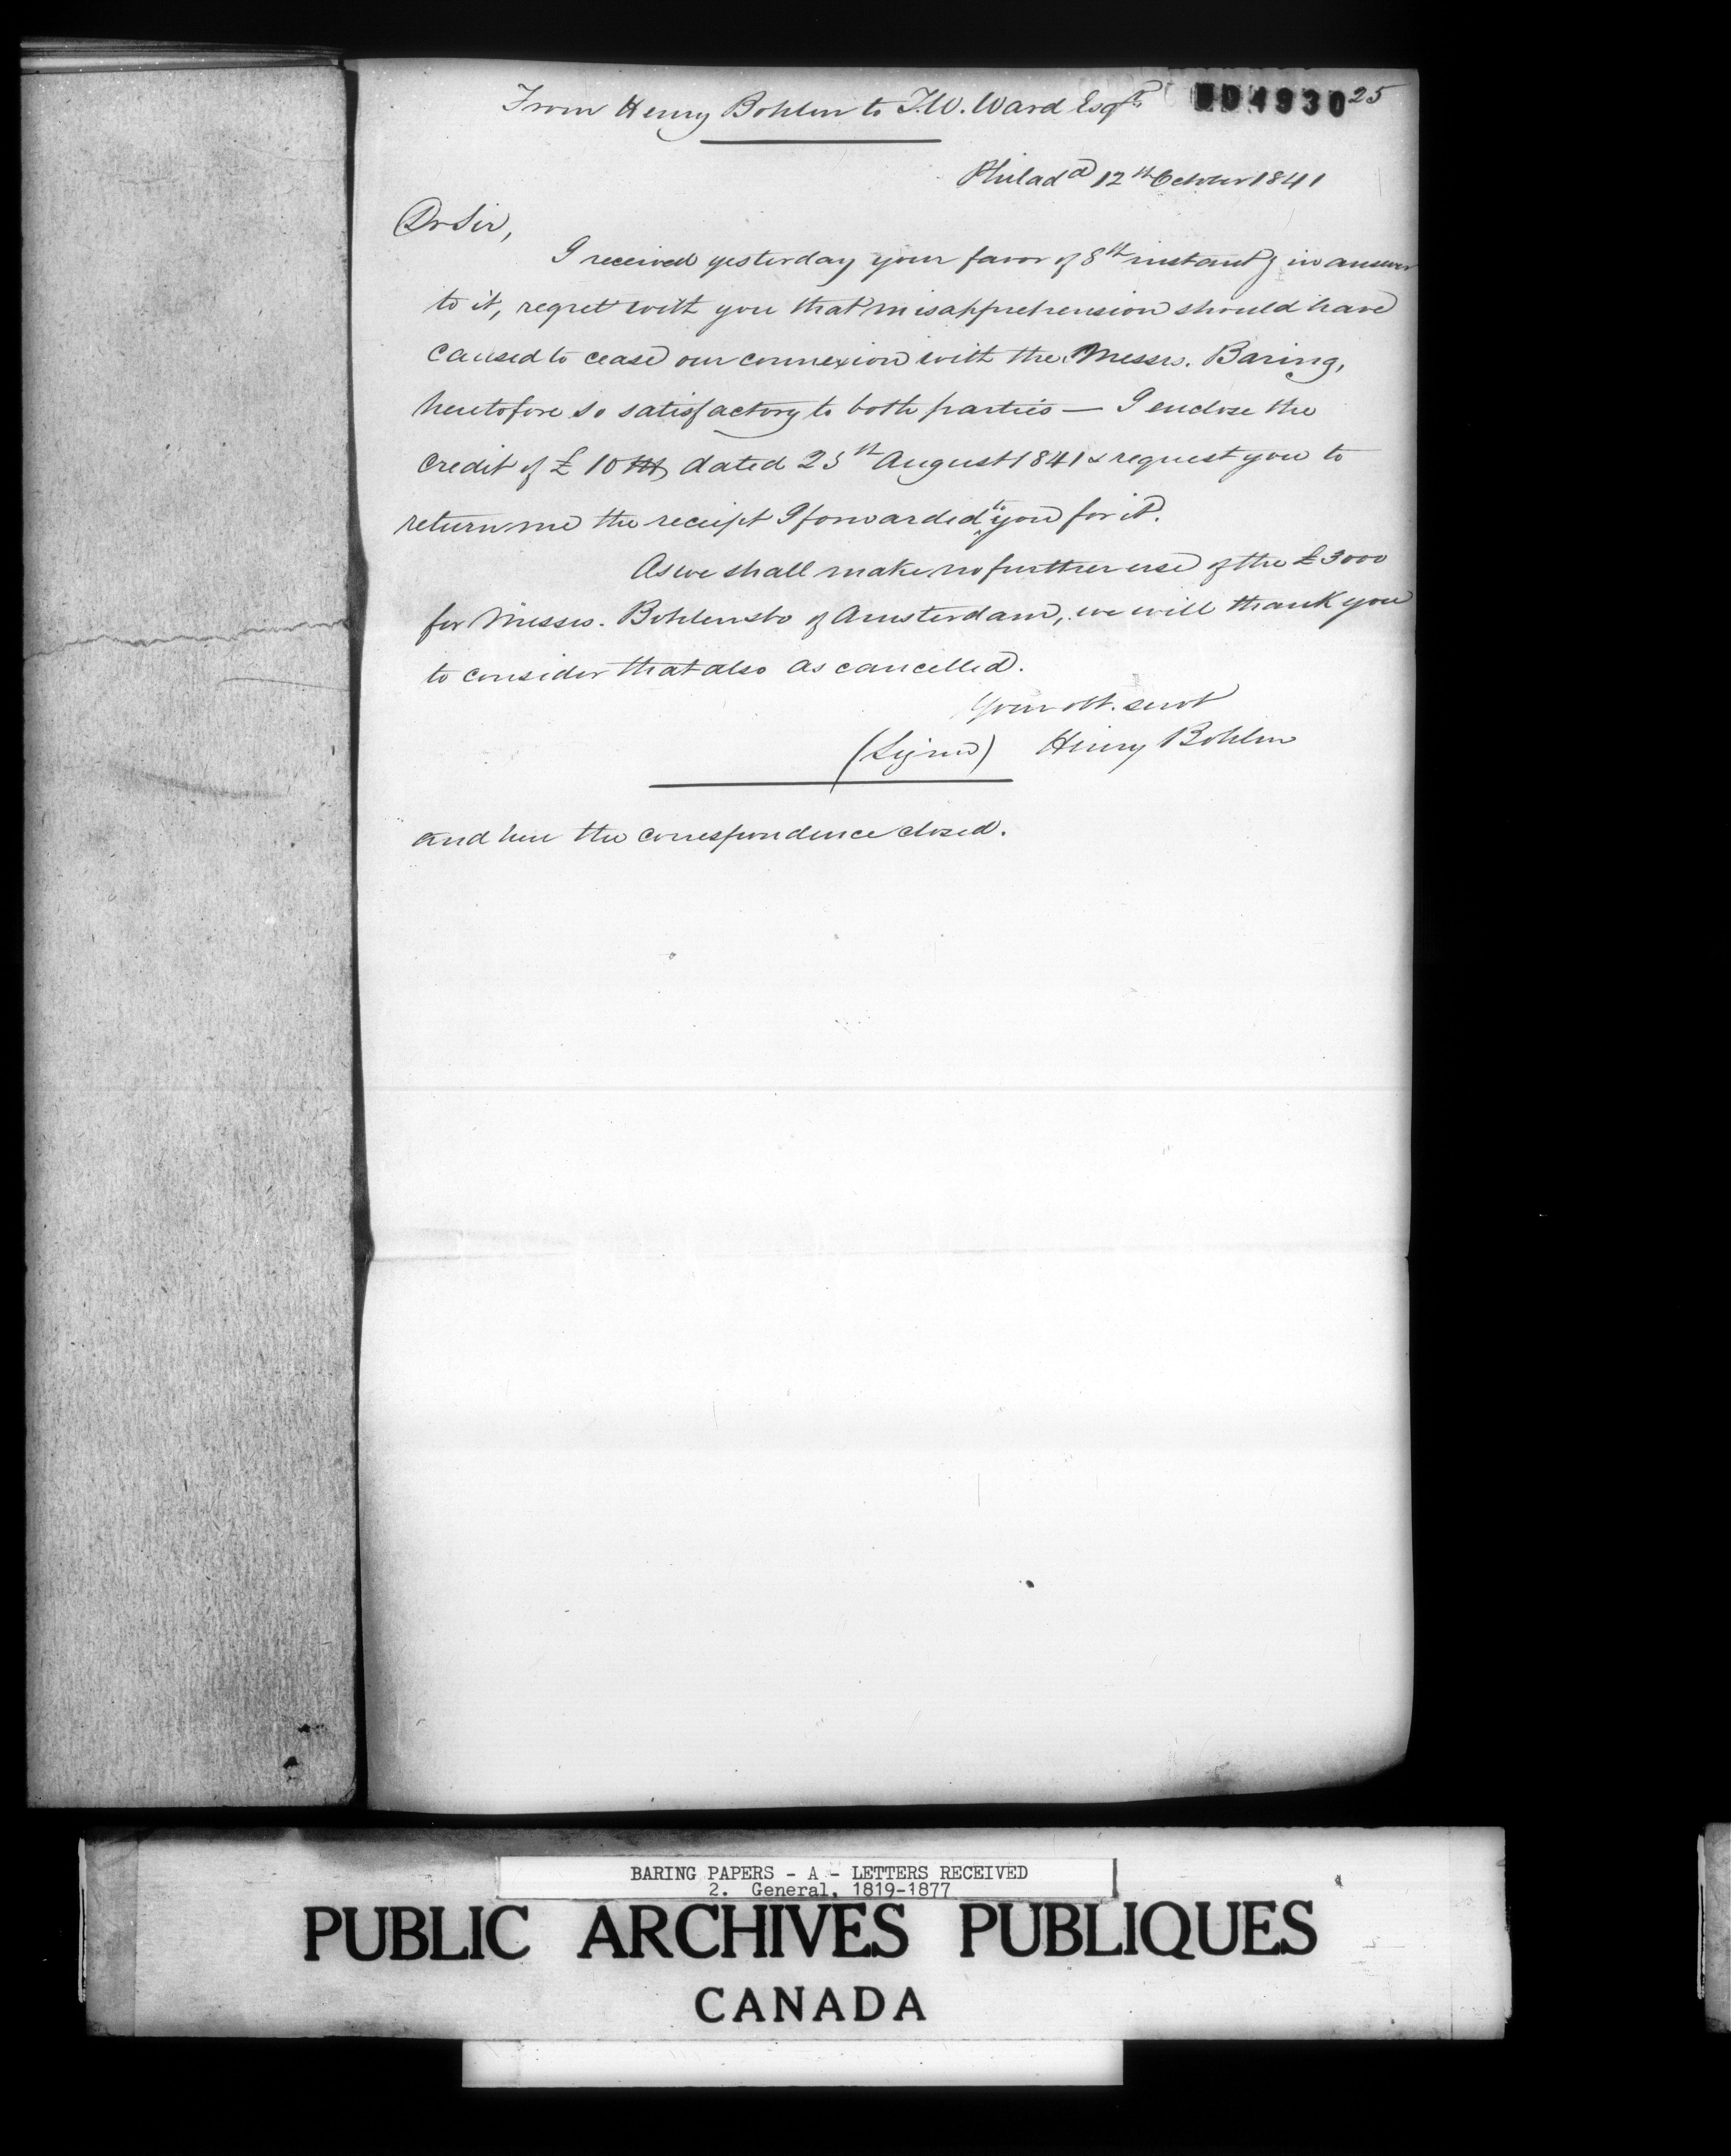 From Henry Bohlen to T.W. Ward Esqre
04930 25
Philada 12th October 1841
Dr Sir,
I received yesterday your favor of 8th instant & in answer
to it, regret with you that misapprehension should have
caused to cease our connexion with the Messrs. Baring,
heretofore so satisfactory to both parties — I enclose the
credit of £ 10 M dated 25th August 1841 & request you to
return me the receipt I forwarded to you for it.
As we shall make no further use of the £3000
for Messrs. Bohlen & Co of Amsterdam, we will thank you
to consider that also as cancelled.
Your obt. servt
(Signed) Henry Bohlen
and here the correspondence closed.
BARING PAPERS - A - LETTERS RECEIVED
2. General, 1819-1877
PUBLIC ARCHIVES PUBLIQUES
CANADA